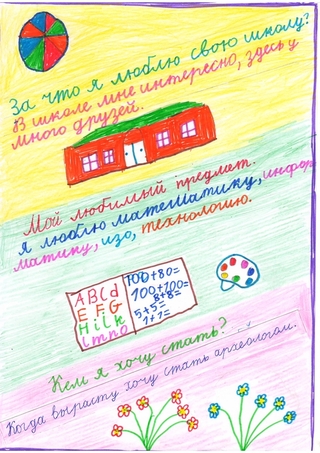 За что я люблю свою школу?
В школе мне интересно, здесь у
много друзей.
Мой любимый предмет.
Я люблю математику, инфор
матику, изо, технологию.
ABCd
EFG
Hilk
lmno
100+80=
100+100=
8+8=
5+5=
1+1=
Кем я хочу стать?
Когда вырасту хочу стать археологом.